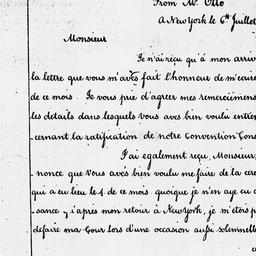 From Mr. Otto
A New York le 6e Juillet
Monsieur
Je n'ai reçu qu'à mon arriv
la lettre que vous m'avés fait l'honneur de m'ecrire
de ce mois. Je vous prie d'agréer mes remerciemens
les details dans lesquels vous avés bien voulu entre
cernant la ratification de notre Convention Cons
J'ai également reçu, Monsieur,
nonce que vous avés bien voulu me faire de la cere
qui a eu lieu le 4 de ce mois. quoique je n'en aye eu c
sance qu'apres mon retour à New York, je m'etois p
de faire ma Cour lors d'une occasion aussi solemnelle